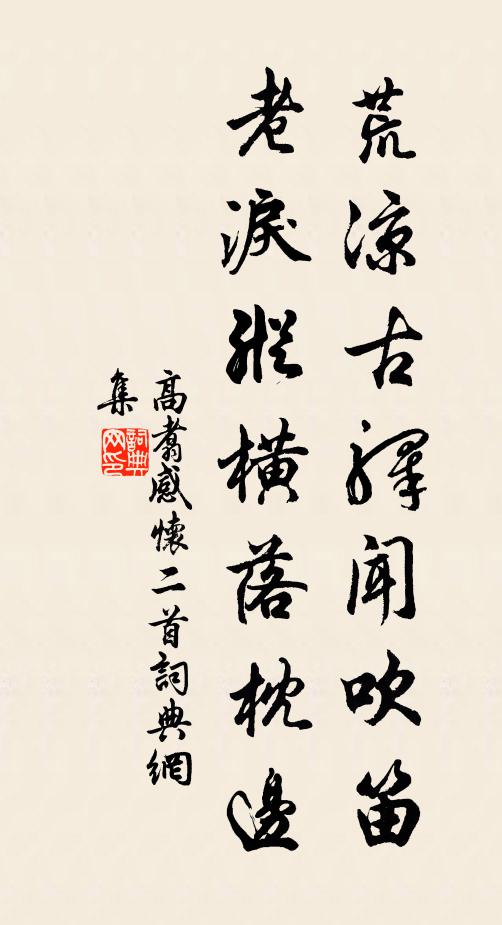 荒涼古驛聞吹笛
老淚縱橫落枕邊
高翥感懷二首詞典網
集
詞典网印